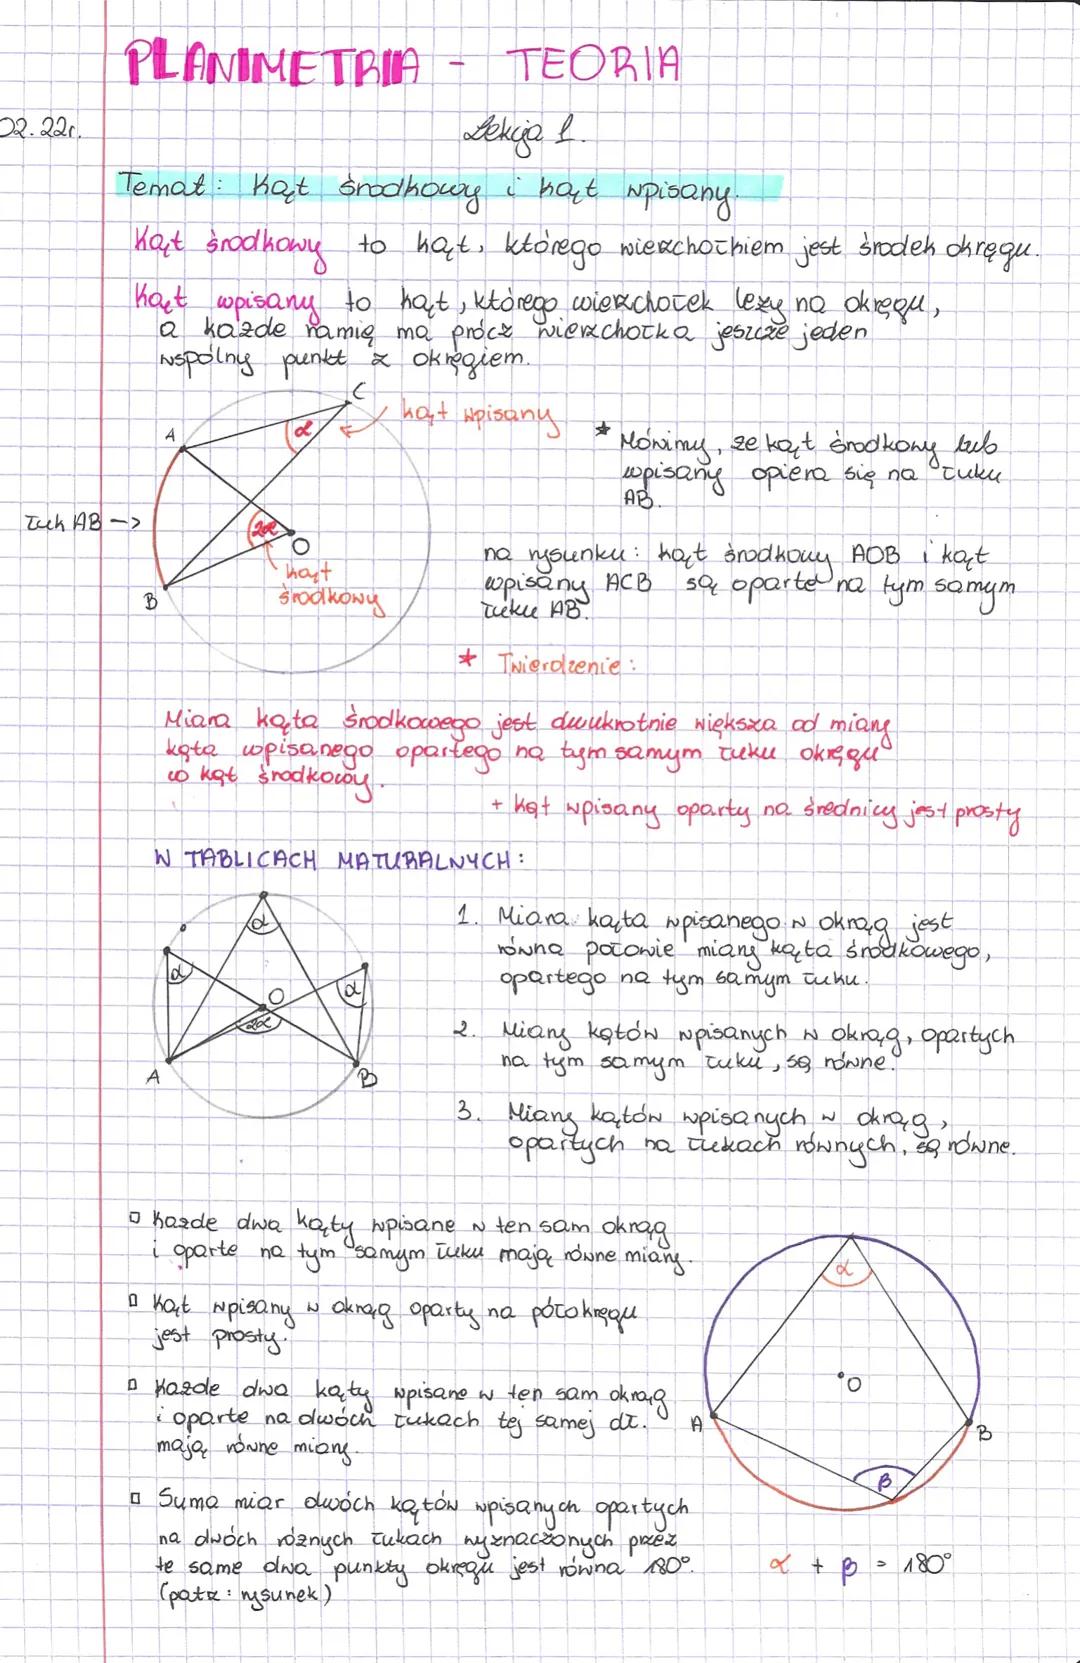 PLANIMETRIA - TEORIA
02.22r.
Lekcja 1.
Temat: Kąt środkowy i kąt wpisany.
Kąt środkowy to kąt, którego wierzchołkiem jest środek okręgu.
Kąt wpisany to kąt, którego wierzchołek leży na okręgu,
a każde ramię ma prócz wierzchołka jeszcze jeden
wspólny punkt z okręgiem.
C
kąt wpisany
α
A
* Mówimy, że kąt środkowy lub
wpisany opiera się na łuku
AB.
łuk AB -->
2α
O
kąt
środkowy
B
na rysunku: kąt środkowy AOB i kąt
wpisany ACB są oparte na tym samym
łuku AB.
* Twierdzenie:
Miara kąta środkowego jest dwukrotnie większa od miary
kąta wpisanego opartego na tym samym łuku okręgu
co kąt środkowy.
+ kąt wpisany oparty na średnicy jest prosty
W TABLICACH MATURALNYCH:
α
α
α
O
2α
A
B
1. Miara kąta wpisanego w okrąg jest
równa połowie miary kąta środkowego,
opartego na tym samym łuku.
2. Miary kątów wpisanych w okrąg, opartych
na tym samym łuku, są równe.
3. Miary kątów wpisanych w okrąg,
opartych na łukach równych, są równe.
Każde dwa kąty wpisane w ten sam okrąg
i oparte na tym samym łuku mają równe miary.
Kąt wpisany w okrąg oparty na półokręgu
jest prosty.
Każde dwa kąty wpisane w ten sam okrąg
i oparte na dwóch łukach tej samej dł.
mają równe miary.
Suma miar dwóch kątów wpisanych opartych
na dwóch różnych łukach wyznaczonych przez
te same dwa punkty okręgu jest równa 180°.
(patrz: rysunek)
α
O
A
B
β
α + β = 180°